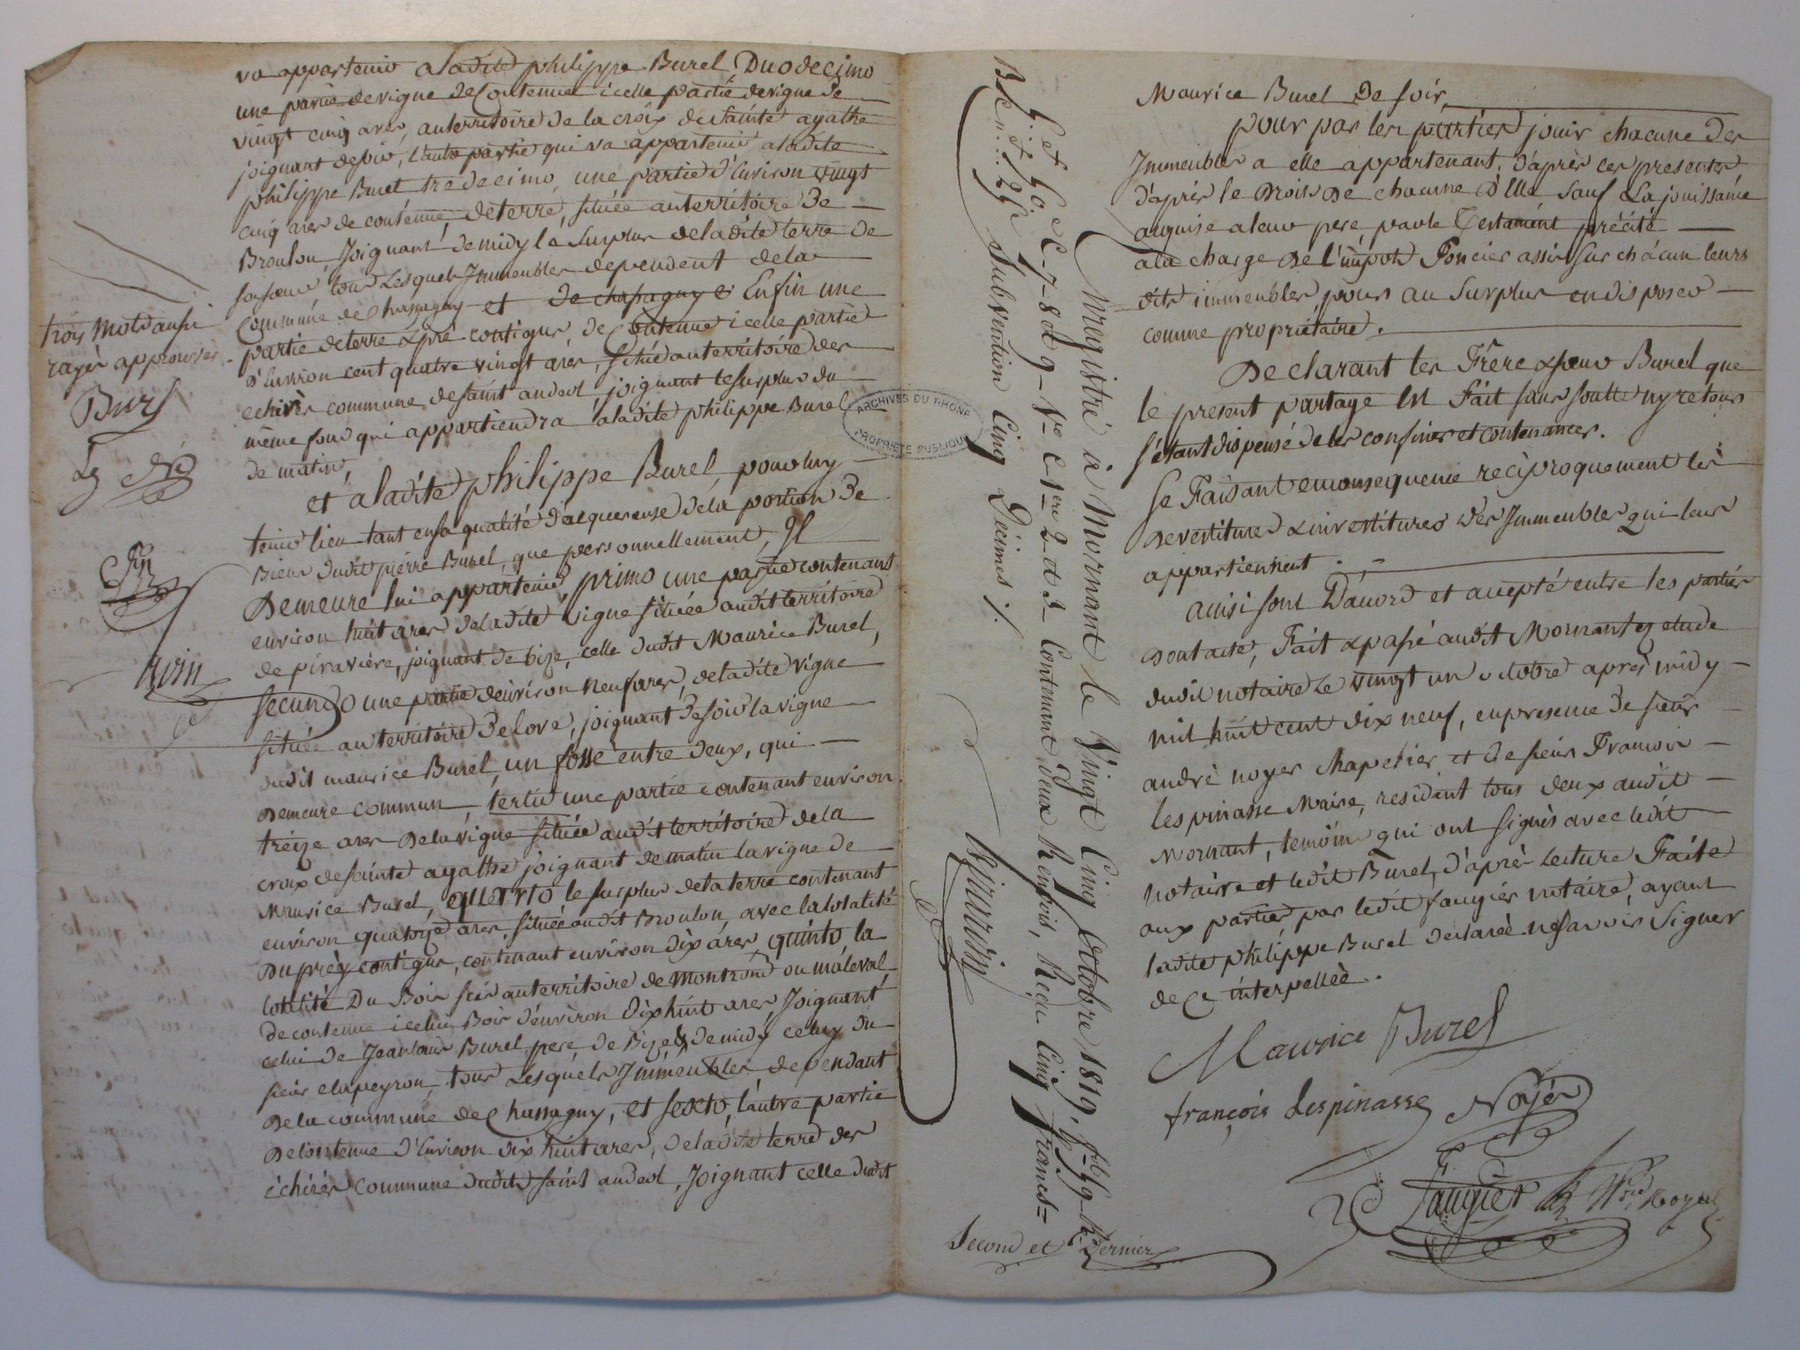 va appartenir a ladite philippe Burel, Duodecimo
une partie de vigne de Contenue icelle partie de vigne de
vingt cinq ares, au territoire de la croix de Sainte agathe
joignant de bise, l'autre partie qui va appartenir a ladite
philippe Burel tredecimo, une partie d'Environ vingt
cinq ares de contenue, de terre située au territoire de
Broulon Joignant de midy le Surplus de ladite terre de
sa soeur tous Lesquels Immeubles dependent de la
Commune de Chassagny et de chassagny et Enfin une
partie de terre & pré contigus, de Contenue icelle partie
d'Environ cent quatre vingt ares, située au territoire des
echirés commune de saint andeol, joignant le surplus du
même fond qui appartiendra a ladite philippe Burel
de matin,
et a ladite philippe Burel, pour luy
tenir lieu tant en sa qualité d'acquereuse de la portion de
Biens dudit pierre Burel, que personnellement, Il
Demeure lui appartenir, primo une partie contenant
environ huit ares de ladite vigne située audit territoire
de piravière, joignant de bize, celle dudit Maurice Burel,
secundo une partie d'environ neuf ares, de ladite vigne
située au territoire de love, joignant de soir la vigne
dudit maurice Burel, un fossé entre deux, qui
Demeure commun, tertio une partie contenant environ
treize ares de la vigne située audit territoire de la
croix de sainte agathe joignant de matin la vigne de
Maurice Burel, quarto le surplus de la terre contenant
environ quatorze ares, située audit Broulon, avec la totalité
Du prèz contigus, contenant environ dix ares, quinto, la
totalité Du Bois scis au territoire de Montrond ou maleval
de contenue icelui Bois d'environ dix huit ares, Joignant
celui de Jean louis Burel, pere de Bize & de midy celuy du
sieur clapeyron, tous Lesquels Immeubles dependant
de la commune de Chassagny, et sexto, l'autre partie
de Contenue d'Environ dix huit ares, de ladite terre des
échirés commune dudit saint andeol, Joignant celle dudit
trois mots aussi
rayés approuvés
Burel
Lg
Noyer
ARCHIVES DU RHÔNE
PROPRIÉTÉ PUBLIQUE
Enregistré à Mornant le Vingt Cinq Octobre 1819, f° 59 R°
C. 7-8 et 9 - V° C. 1ere 2 et 3 Contenant deux Renvois, Reçu Cinq francs
Subvention Cinq Décimes ./.
Second et dernier
Maurice Burel de soir,
pour par les parties jouir chacune des
Immeubles a elle appartenant, d'après les presentes
d'après le Droit de chacune d'Elle sauf La jouissance
acquise a leur pere par le Testament précité
a la charge de l'impot Foncier assis sur chacun leurs
dits immeubles, pour au surplus en disposer
comme propriétaire.
Declarant les Frère & soeur Burel que
le present partage est Fait sans soulte ny retours
s'étant dispensé de les confiner et contenances.
Se Faisant en consequence reciproquement les
devestitures & investitures des Immeubles qui leur
appartiennent.
ainsi sont D'accord et accepté entre les parties
dont acte, Fait & passé audit Mornant ez etude
dudit notaire Le vingt un octobre apres midy
mil huit cent dix neuf, en presence de sieur
andrè noyer chapelier et de sieur Francois
lespinasse Maire, residant tous deux audit
Mornant, temoins qui ont signés avec ledit
notaire et ledit Burel, d'après Lecture Faite
aux parties par ledit faugier notaire, ayant
ladite philippe Burel declarée ne savoir signer
de Ce interpellée.
Maurice Burel
françois Lespinasse Noyer
Faugier